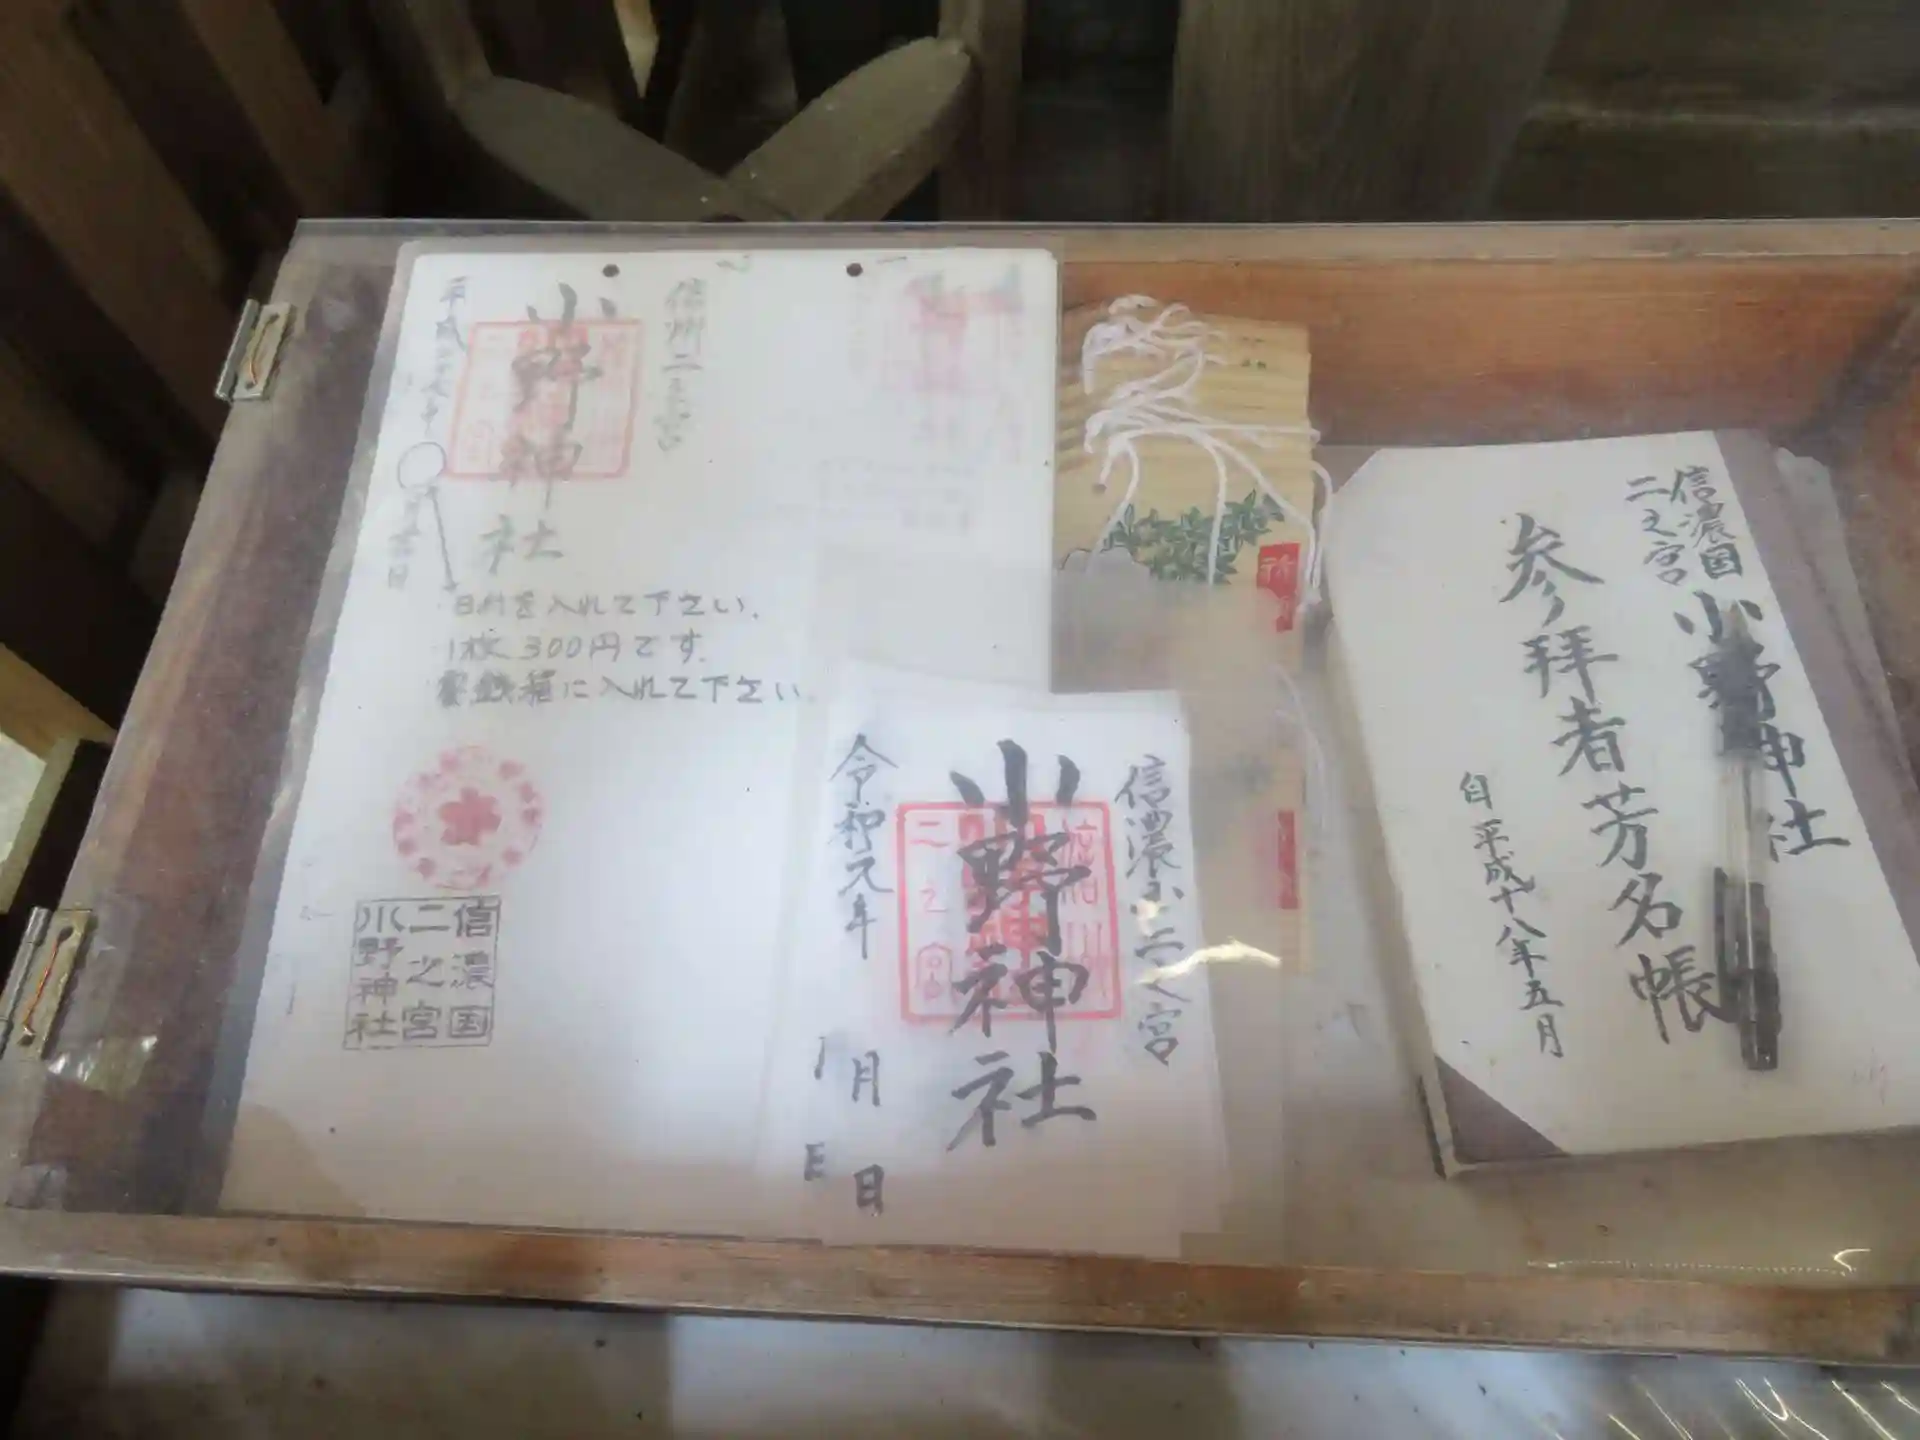 信州二之宮
小野神社
日付を入れて下さい.
1枚 300円です.
賽銭箱に入れて下さい.
信濃国
二之宮
小野神社
信濃国二之宮
小野神社
信州
二之宮
令和元年
月
日
信濃国
二之宮
小野神社
参拝者芳名帳
自平成十八年五月